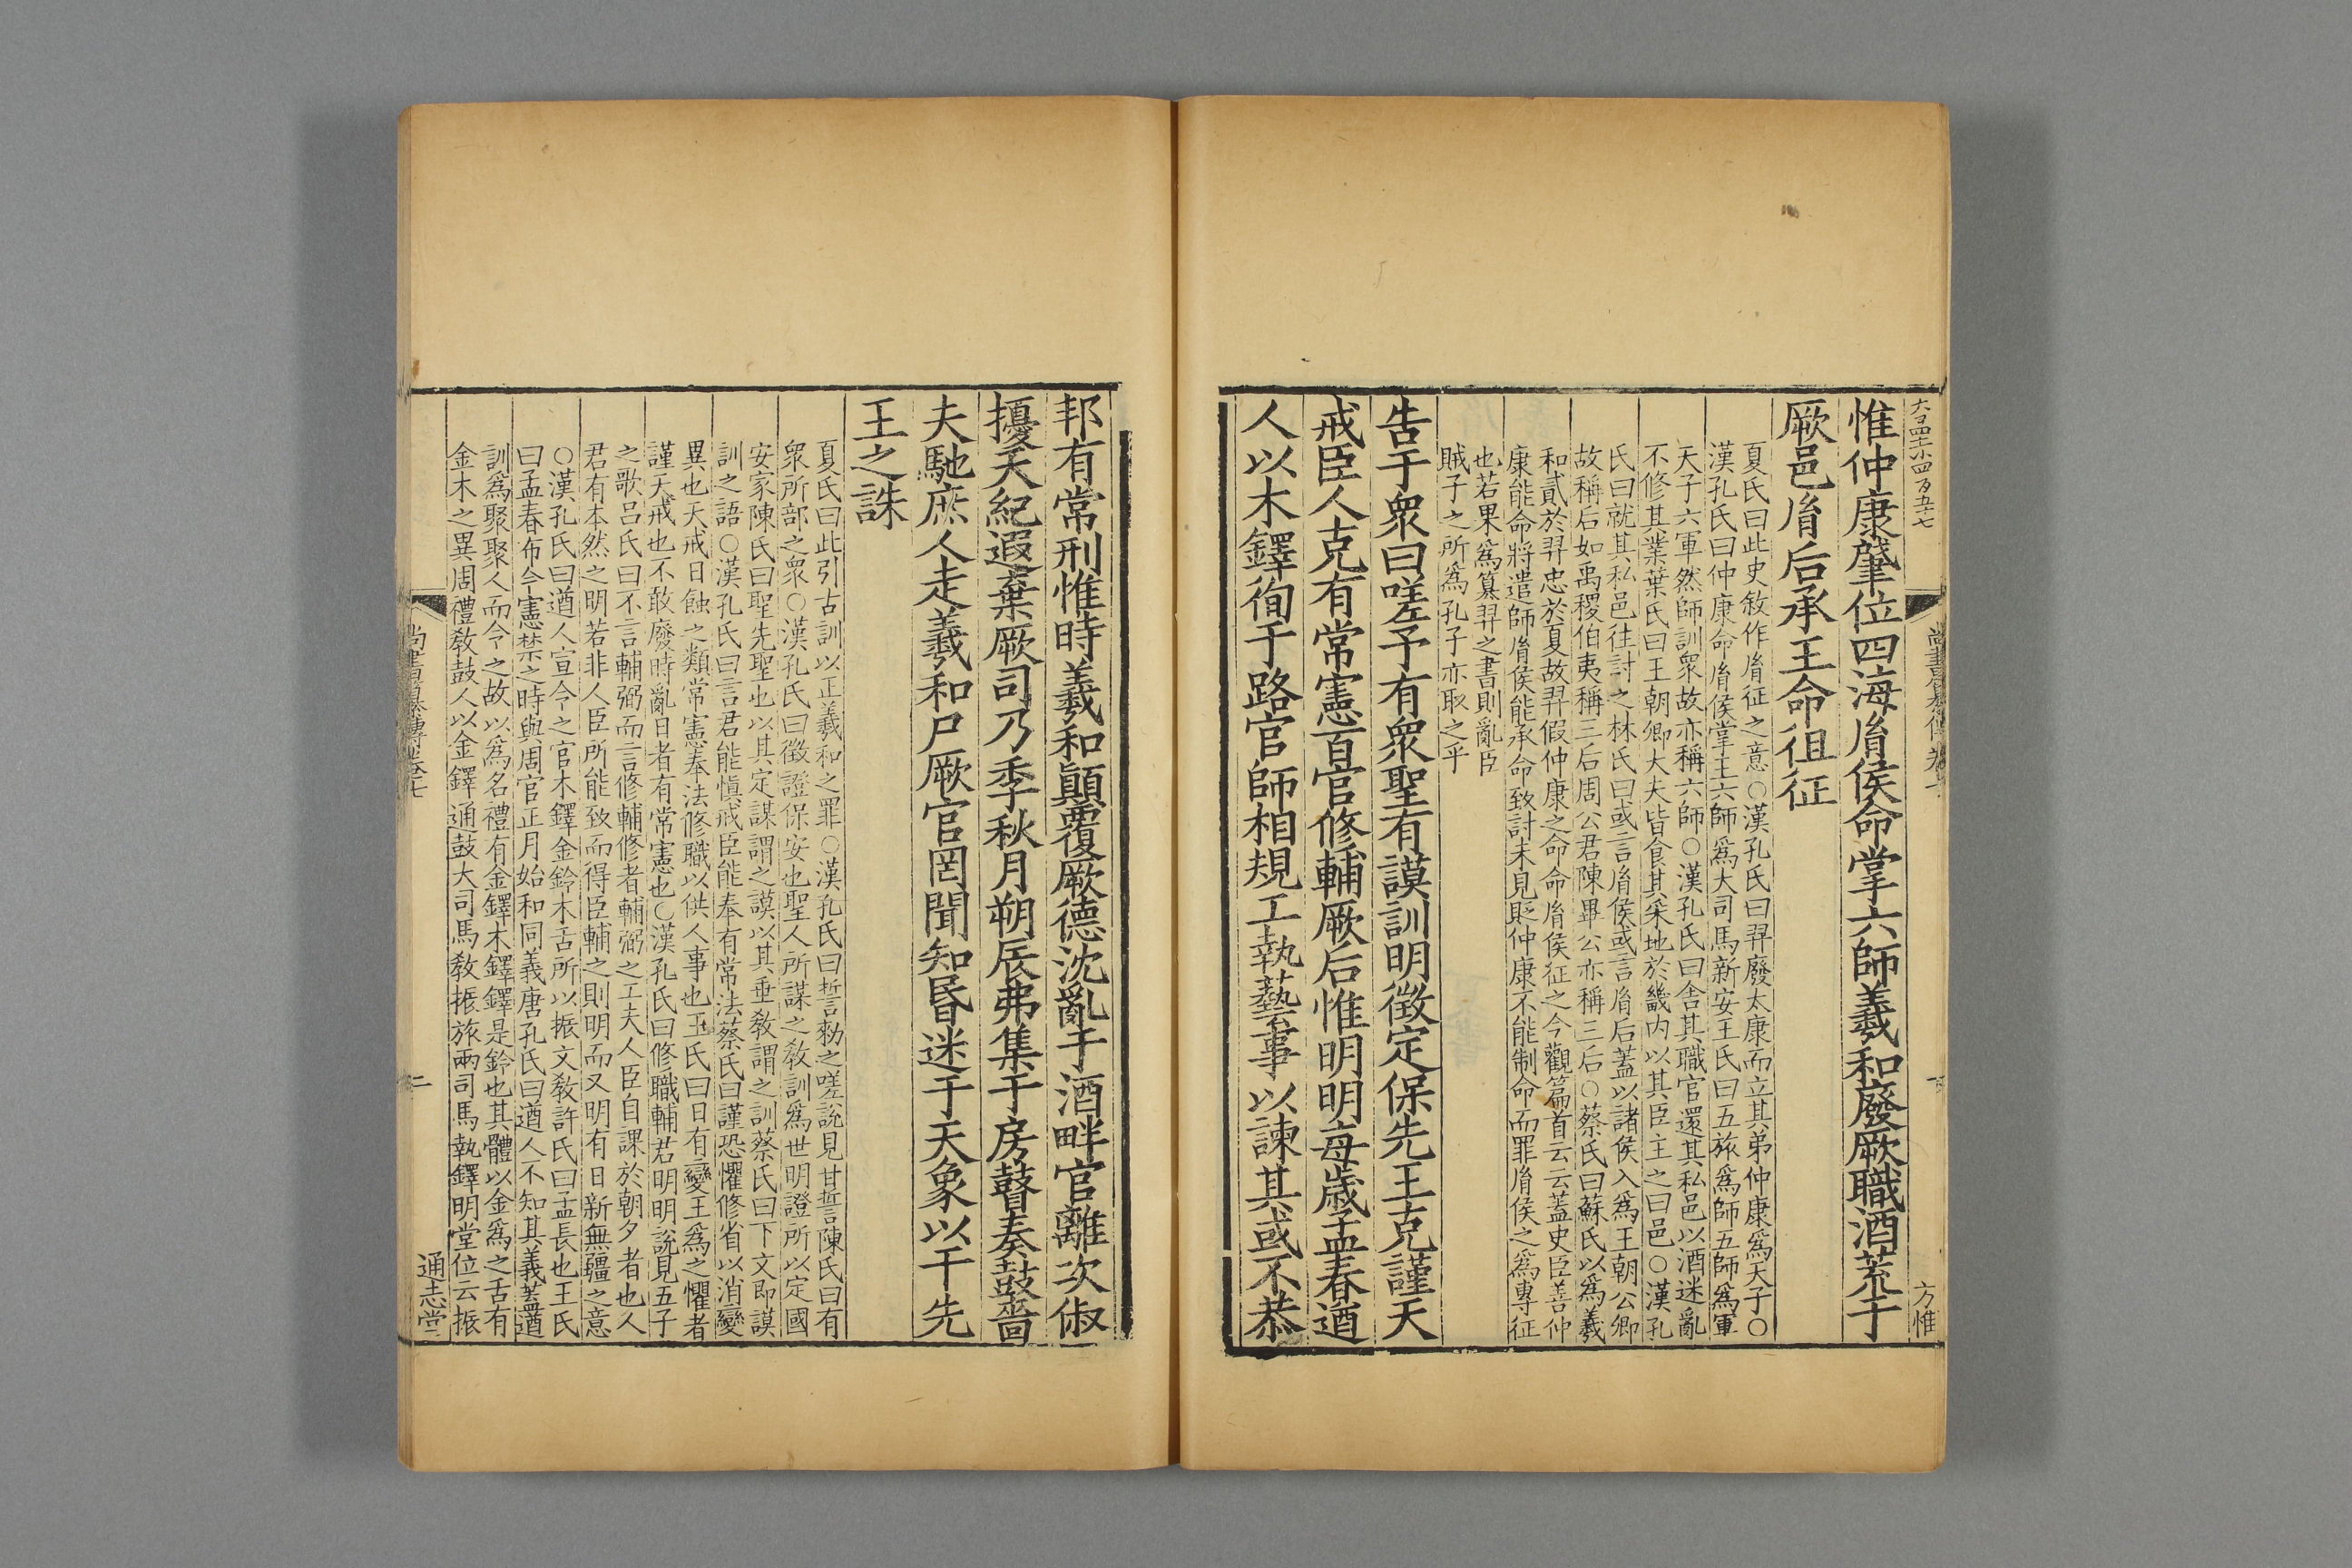 惟仲康肇位四海胤侯命掌六師羲和廢厥職酒荒于
厥邑胤后承王命徂征
夏氏曰此史敍作胤征之意○漢孔氏曰羿廢太康而立其弟仲康爲天子○
漢孔氏曰仲康命胤侯掌王六師爲大司馬新安王氏曰五旅爲師五師爲軍
天子六軍然師訓衆故亦稱六師○漢孔氏曰舍其職官還其私邑以酒迷亂
不修其業葉氏曰王朝卿大夫皆食其采地於畿內以其臣主之曰邑○漢孔
氏曰就其私邑往討之林氏曰或言胤侯或言胤后蓋以諸侯入爲王朝公卿
故稱后如禹稷伯夷稱三后周公君陳畢公亦稱三后○蔡氏曰蘇氏以爲羲
和貳於羿忠於夏故羿假仲康之命命胤侯征之今觀篇首云云蓋史臣善仲
康能命將遣師胤侯能承命致討未見貶仲康不能制命而罪胤侯之爲專征
也若果爲簒羿之書則亂臣
賊子之所爲孔子亦取之乎
告于衆曰嗟予有衆聖有謨訓明徵定保先王克謹天
戒臣人克有常憲百官修輔厥后惟明明每歲孟春遒
人以木鐸徇于路官師相規工執藝事以諫其或不恭
方惟
邦有常刑惟時羲和顚覆厥德沈亂于酒畔官離次俶
擾天紀遐棄厥司乃季秋月朔辰弗集于房瞽奏鼓嗇
夫馳庶人走羲和尸厥官罔聞知昏迷于天象以干先
王之誅
夏氏曰此引古訓以正羲和之罪○漢孔氏曰誓勑之嗟說見甘誓陳氏曰有
衆所部之衆○漢孔氏曰徵證保安也聖人所謀之敎訓爲世明證所以定國
安家陳氏曰聖先聖也以其定謀謂之謨以其垂敎謂之訓蔡氏曰下文即謨
訓之語○漢孔氏曰言君能愼戒臣能奉有常法蔡氏曰謹恐懼修省以消變
異也天戒日蝕之類常憲奉法修職以供人事也王氏曰日有變王爲之懼者
謹天戒也不敢廢時亂日者有常憲也○漢孔氏曰修職輔君明明說見五子
之歌呂氏曰不言輔弼而言修輔修者輔弼之工夫人臣自課於朝夕者也人
君有本然之明若非人臣所能致而得臣輔之則明而又明有日新無疆之意
○漢孔氏曰遒人宣令之官木鐸金鈴木舌所以振文敎許氏曰孟長也王氏
曰孟春布令憲禁之時與周官正月始和同義唐孔氏曰遒人不知其義蓋遒
訓爲聚聚人而令之故以爲名禮有金鐸木鐸鐸是鈴也其體以金爲之舌有
金木之異周禮敎鼓人以金鐸通鼓大司馬敎振旅兩司馬執鐸明堂位云振
尚書纂傳卷七
二
通志堂